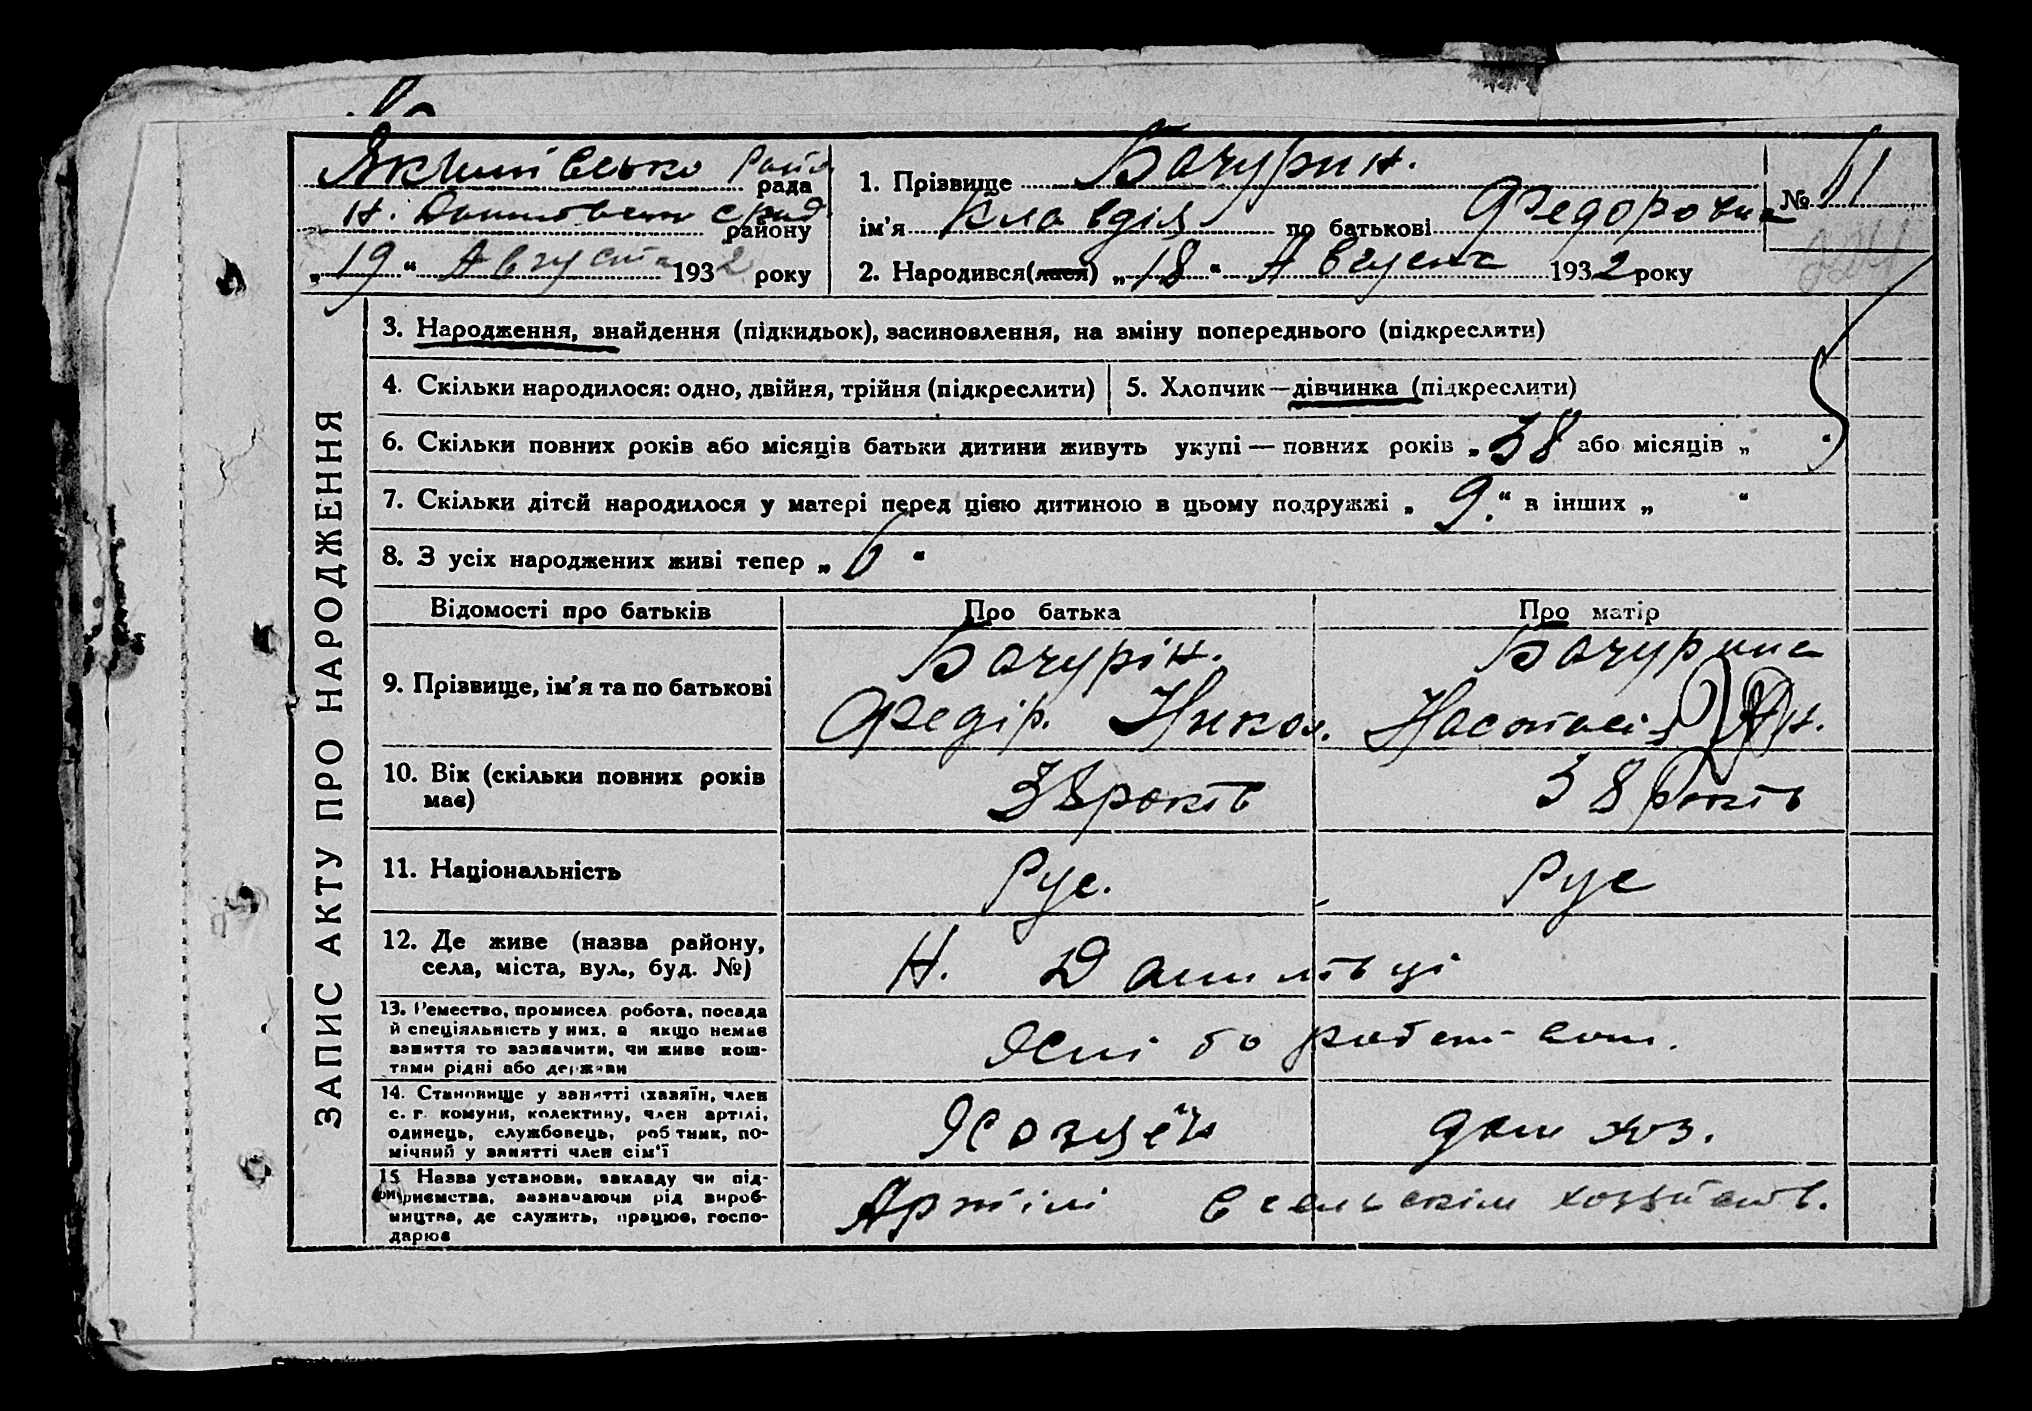 Якимівсько Район
рада
Н. Данилівськ с рад
району
„19“ Августа 1932 року
1. Прізвище Бачурин.
ім'я Клавдія по батькові Федоровна
№ 11
2. Народився(лася) „18“ Августа 1932 року
ЗАПИС АКТУ ПРО НАРОДЖЕННЯ
3. Народження, знайдення (підкидьок), засиновлення, на зміну попереднього (підкреслити)
4. Скільки народилося: одно, двійня, трійня (підкреслити) 5. Хлопчик—дівчинка (підкреслити)
6. Скільки повних років або місяців батьки дитини живуть укупі — повних років „38 або місяців „
7. Скільки дітей народилося у матері перед цією дитиною в цьому подружжі „9.“ в інших „ “
8. З усіх народжених живі тепер „6“
Відомості про батьків Про батька Про матір
9. Прізвище, ім'я та по батькові
Бачурін. Бачурина
Федір. Никол. Настасія
10. Вік (скільки повних років має)
38 років 38 років
11. Національність Рус. Рус
12. Де живе (назва району,
села, міста, вул., буд. №)
Н. Данилівці
13. Ремество, промисел. робота, посада
й спеціяльність у них, а якщо немає
заняття то зазначити, чи живе кош-
тами рідні або держави
14. Становище у занятті (хазяїн, член
с. г. комуни, колективу, член артілі,
одинець, службовець, робітник, по-
мічний у занятті член сім'ї
Хозяен дом хоз.
15. Назва установи, закладу чи під-
приємства, зазначаючи рід вироб-
ництва, де служить, працює, госпо-
дарює
Артілі в сельскім хозяйств.